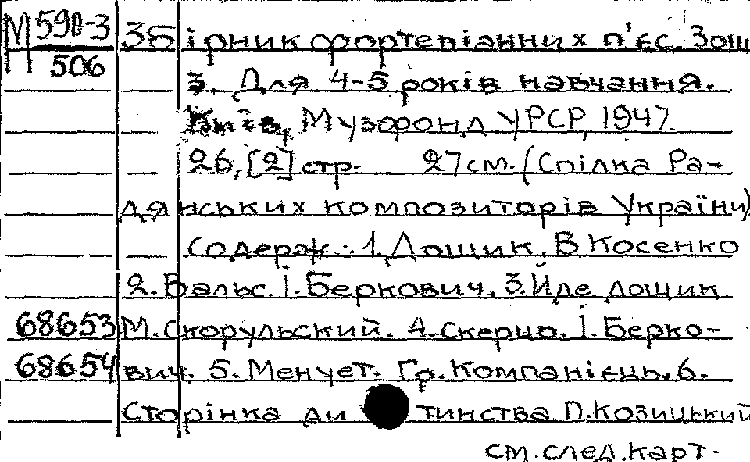 М 590-3 Збірник фортепіанних п'єс. Зош
506 3. Для 4-5 років навчання.
Київ, Музфонд УРСР, 1947.
26, [2] стр. 27 см. (Спілка Ра-
дянських композиторів України)
Содерж.: 1. Дощик. В Косенко
2. Вальс. І. Беркович. 3. Йде дощик
68653 М. Скорульский. 4. Скерцо. І. Берко-
68654 вич. 5. Менует. Гр. Компанієць. 6.
Сторінка ди тинства П. Козицький
см. след. карт.